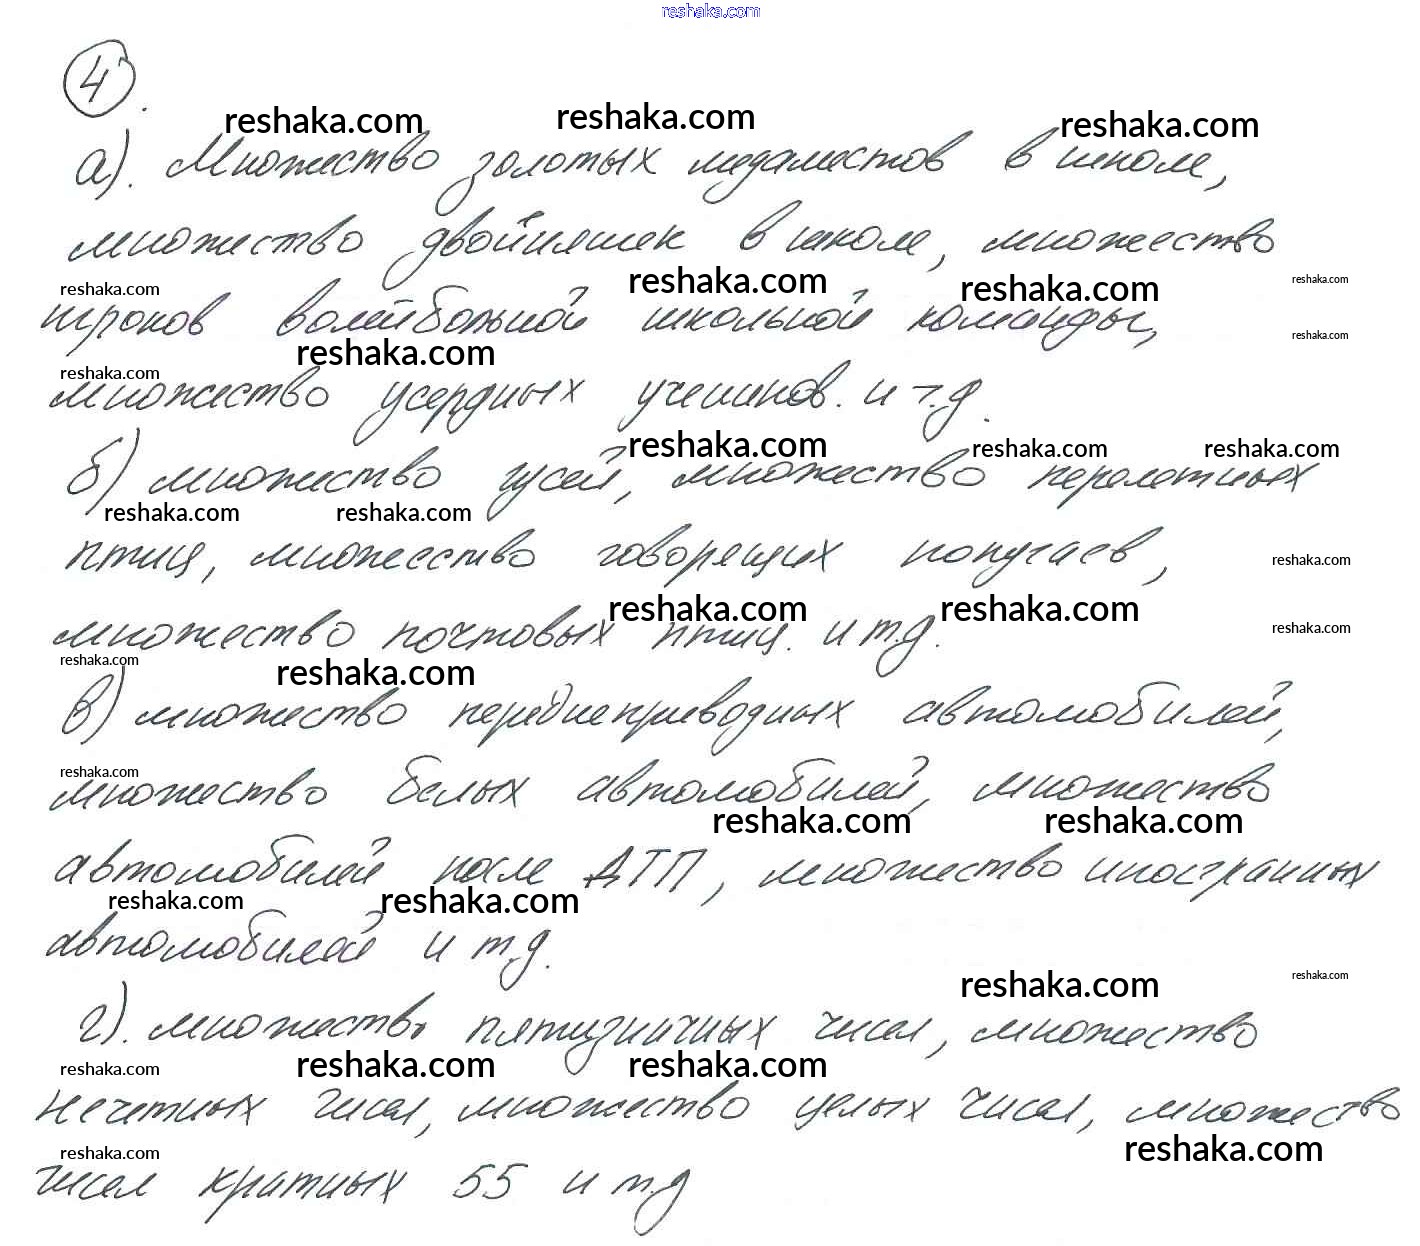 reshaka.com
4.
reshaka.com reshaka.com reshaka.com
а). Множество золотых медалистов в школе,
множество двойняшек в школе, множество
reshaka.com reshaka.com reshaka.com reshaka.com
игроков волейбольной школьной команды,
reshaka.com reshaka.com reshaka.com
множество усердных учеников. и т.д.
reshaka.com reshaka.com reshaka.com
б) множество гусей, множество перелетных
reshaka.com reshaka.com
птиц, множество говорящих попугаев,
reshaka.com
reshaka.com reshaka.com
множество почтовых птиц. и т.д.
reshaka.com
reshaka.com reshaka.com
в) множество переднеприводных автомобилей,
reshaka.com
множество белых автомобилей, множество
reshaka.com reshaka.com
автомобилей после ДТП, множество иностранных
reshaka.com reshaka.com
автомобилей и т.д.
reshaka.com reshaka.com
г). множество пятизначных чисел, множество
reshaka.com reshaka.com reshaka.com
нечетных чисел, множество целых чисел, множество
reshaka.com reshaka.com
чисел кратных 55 и т.д